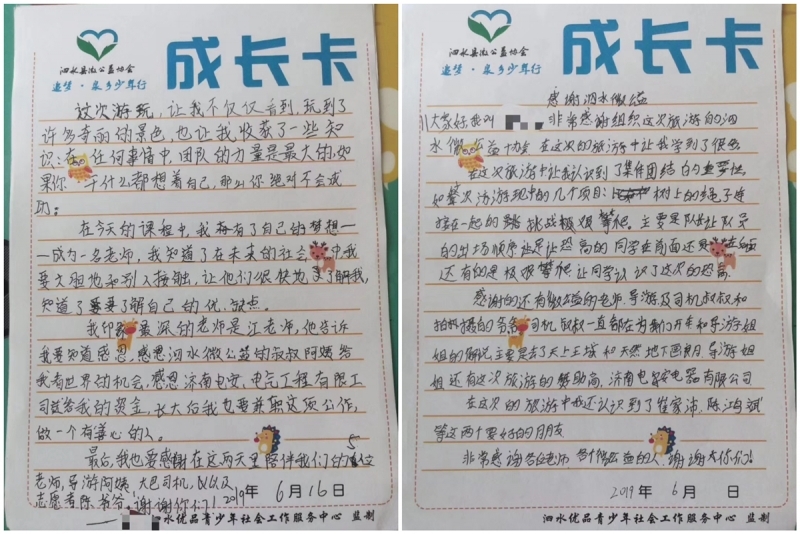 泗水县微公益协会
追梦·泉乡少年行
成长卡
这次游玩，让我不仅仅看到，玩到了
许多奇丽的景色，也让我收获了一些知
识：在任何事情中，团队的力量是最大的，如
果你一干什么都想着自己，那么你绝对不会成
功；
在今天的课程中，我拥有了自己的梦想一
一成为一名老师，我知道了在未来的社会中我
要大胆地和别人接触，让他们很快地了解我，
知道了要了解自己的优、缺点。
我印象最深的老师是江老师，他告诉
我要知道感恩，感恩泗水微公益的叔叔阿姨给
我看世界的机会，感恩济南电安，电气工程有限公
司给我的资金，长大后我也要兼职这项工作，
做一个有善心的人。
最后，我也要感谢在这两天里陪伴我们的5位
老师，导游阿姨，大巴司机，以及
志愿者陈爷爷，谢谢你们！2019年6月16日
泗水优品青少年社会工作服务中心 监制
泗水县微公益协会
追梦·泉乡少年行
成长卡
感谢泗水微益
大家好我叫 非常感谢组织这次旅游的泗
水微公益协会 在这次的旅游中让我学到了很多
在这次旅游中让我认识到了集体团结的重要性
如 树上的绳子连
接在一起的 挑战极 攀爬。主要是队
的出场顺序 让恐高的同学在前面还是在后面
还有的是 攀爬 让同学认识了这次的恐高
感谢的还有微公益的老师，导游及司机叔叔和
拍机 司机叔叔一直都在为我们开车和导游姐
姐的解说 主要是去了天上王城 和天然地下画廊 导游姐
姐还有这次旅游的赞助商，济南电 安电器有限公司
在这次的旅游中我还认识到了崔家沛，陈鸿斌
等这两个要好的朋友
非常感谢各位老师 各个微公益的人 谢谢大你们！
2019年6月 日
泗水优品青少年社会工作服务中心 监制